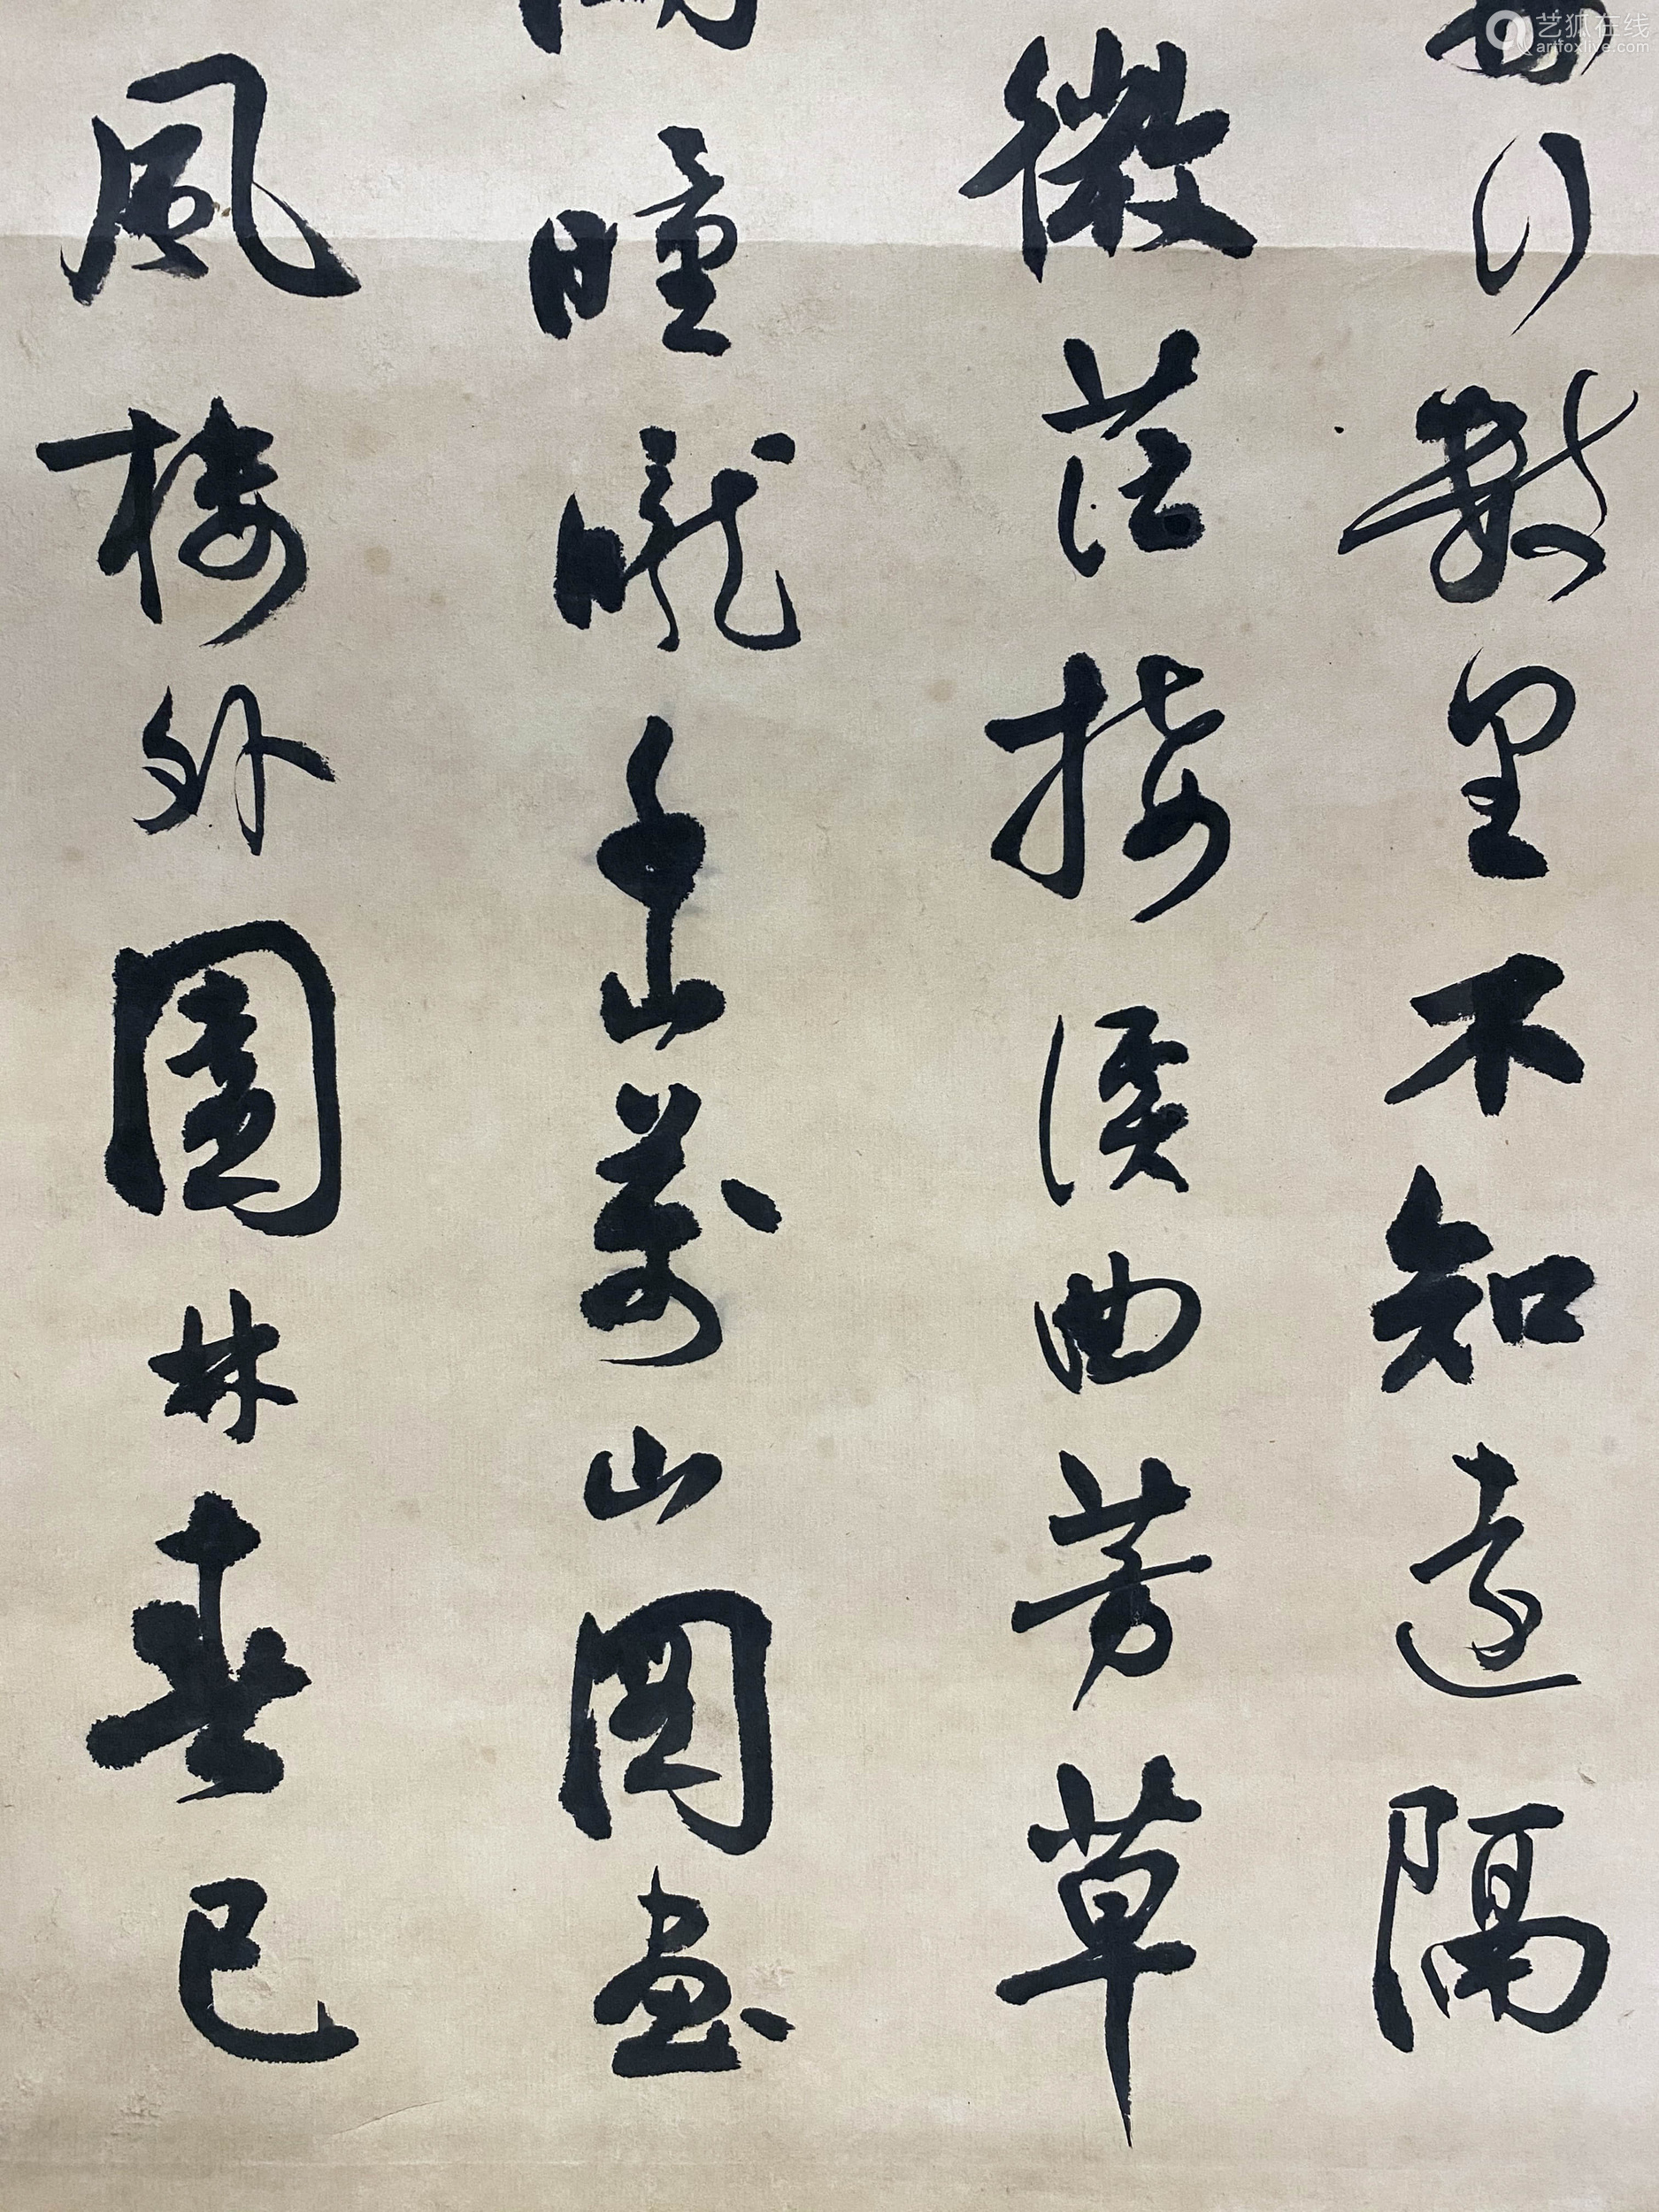 行數里不知遠隔
微茫接溪曲芳草
曈曨千山萬山圖畫
風樓外園林春已
艺狐在线
artfoxlive.com